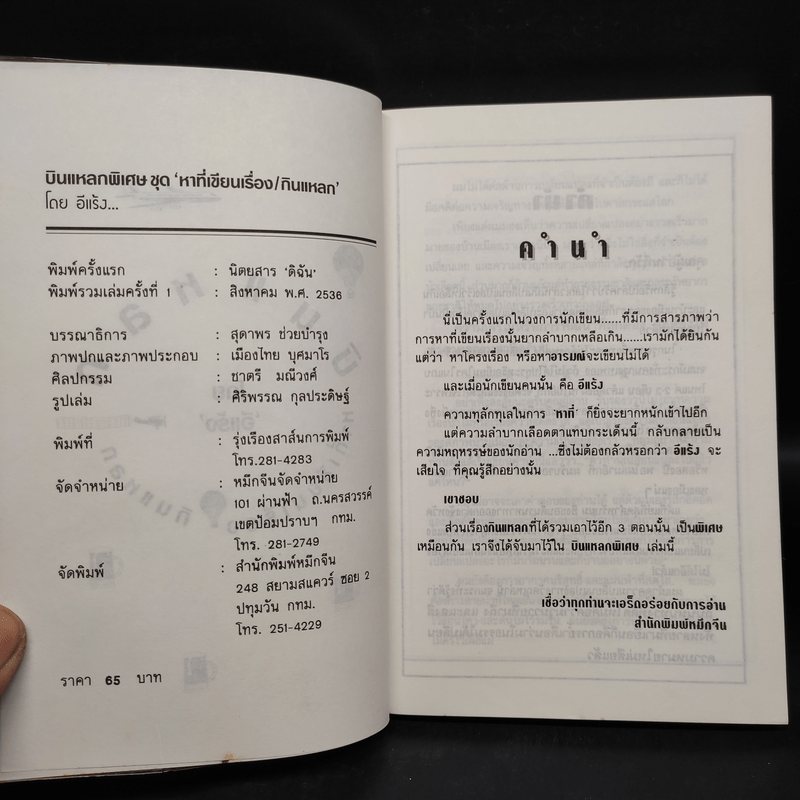 บินแหลกพิเศษ ชุด ‘หาที่เขียนเรื่อง/กินแหลก’
โดย อีแร้ง...
พิมพ์ครั้งแรก : นิตยสาร ‘ดิฉัน’
พิมพ์รวมเล่มครั้งที่ 1 : สิงหาคม พ.ศ. 2536
บรรณาธิการ : สุดาพร ช่วยบำรุง
ภาพปกและภาพประกอบ : เมืองไทย บุศมาโร
ศิลปกรรม : ชาตรี มณีวงศ์
รูปเล่ม : ศิริพรรณ กุลประดิษฐ์
พิมพ์ที่ : รุ่งเรืองสาส์นการพิมพ์
โทร.281-4283
จัดจำหน่าย : หมึกจีนจัดจำหน่าย
101 ผ่านฟ้า ถ.นครสวรรค์
เขตป้อมปราบฯ กทม.
โทร. 281-2749
จัดพิมพ์ : สำนักพิมพ์หมึกจีน
248 สยามสแควร์ ซอย 2
ปทุมวัน กทม.
โทร. 251-4229
ราคา 65 บาท
คำนำ
นี่เป็นครั้งแรกในวงการนักเขียน......ที่มีการสารภาพว่า
การหาที่เขียนเรื่องนั้นยากลำบากเหลือเกิน......เรามักได้ยินกัน
แต่ว่า หาโครงเรื่อง หรือหาอารมณ์จะเขียนไม่ได้
และเมื่อนักเขียนคนนั้น คือ อีแร้ง
ความทุลักทุเลในการ ‘หาที่’ ก็ยิ่งจะยากหนักเข้าไปอีก
แต่ความลำบากเลือดตาแทบกระเด็นนี้ กลับกลายเป็น
ความหฤหรรษ์ของนักอ่าน ...ซึ่งไม่ต้องกลัวหรอกว่า อีแร้ง จะ
เสียใจ ที่คุณรู้สึกอย่างนั้น
เขาชอบ
ส่วนเรื่องกินแหลกที่ได้รวมเอาไว้อีก 3 ตอนนั้น เป็นพิเศษ
เหมือนกัน เราจึงได้จับมาไว้ใน บินแหลกพิเศษ เล่มนี้
เชื่อว่าทุกท่านจะเอร็ดอร่อยกับการอ่าน
สำนักพิมพ์หมึกจีน